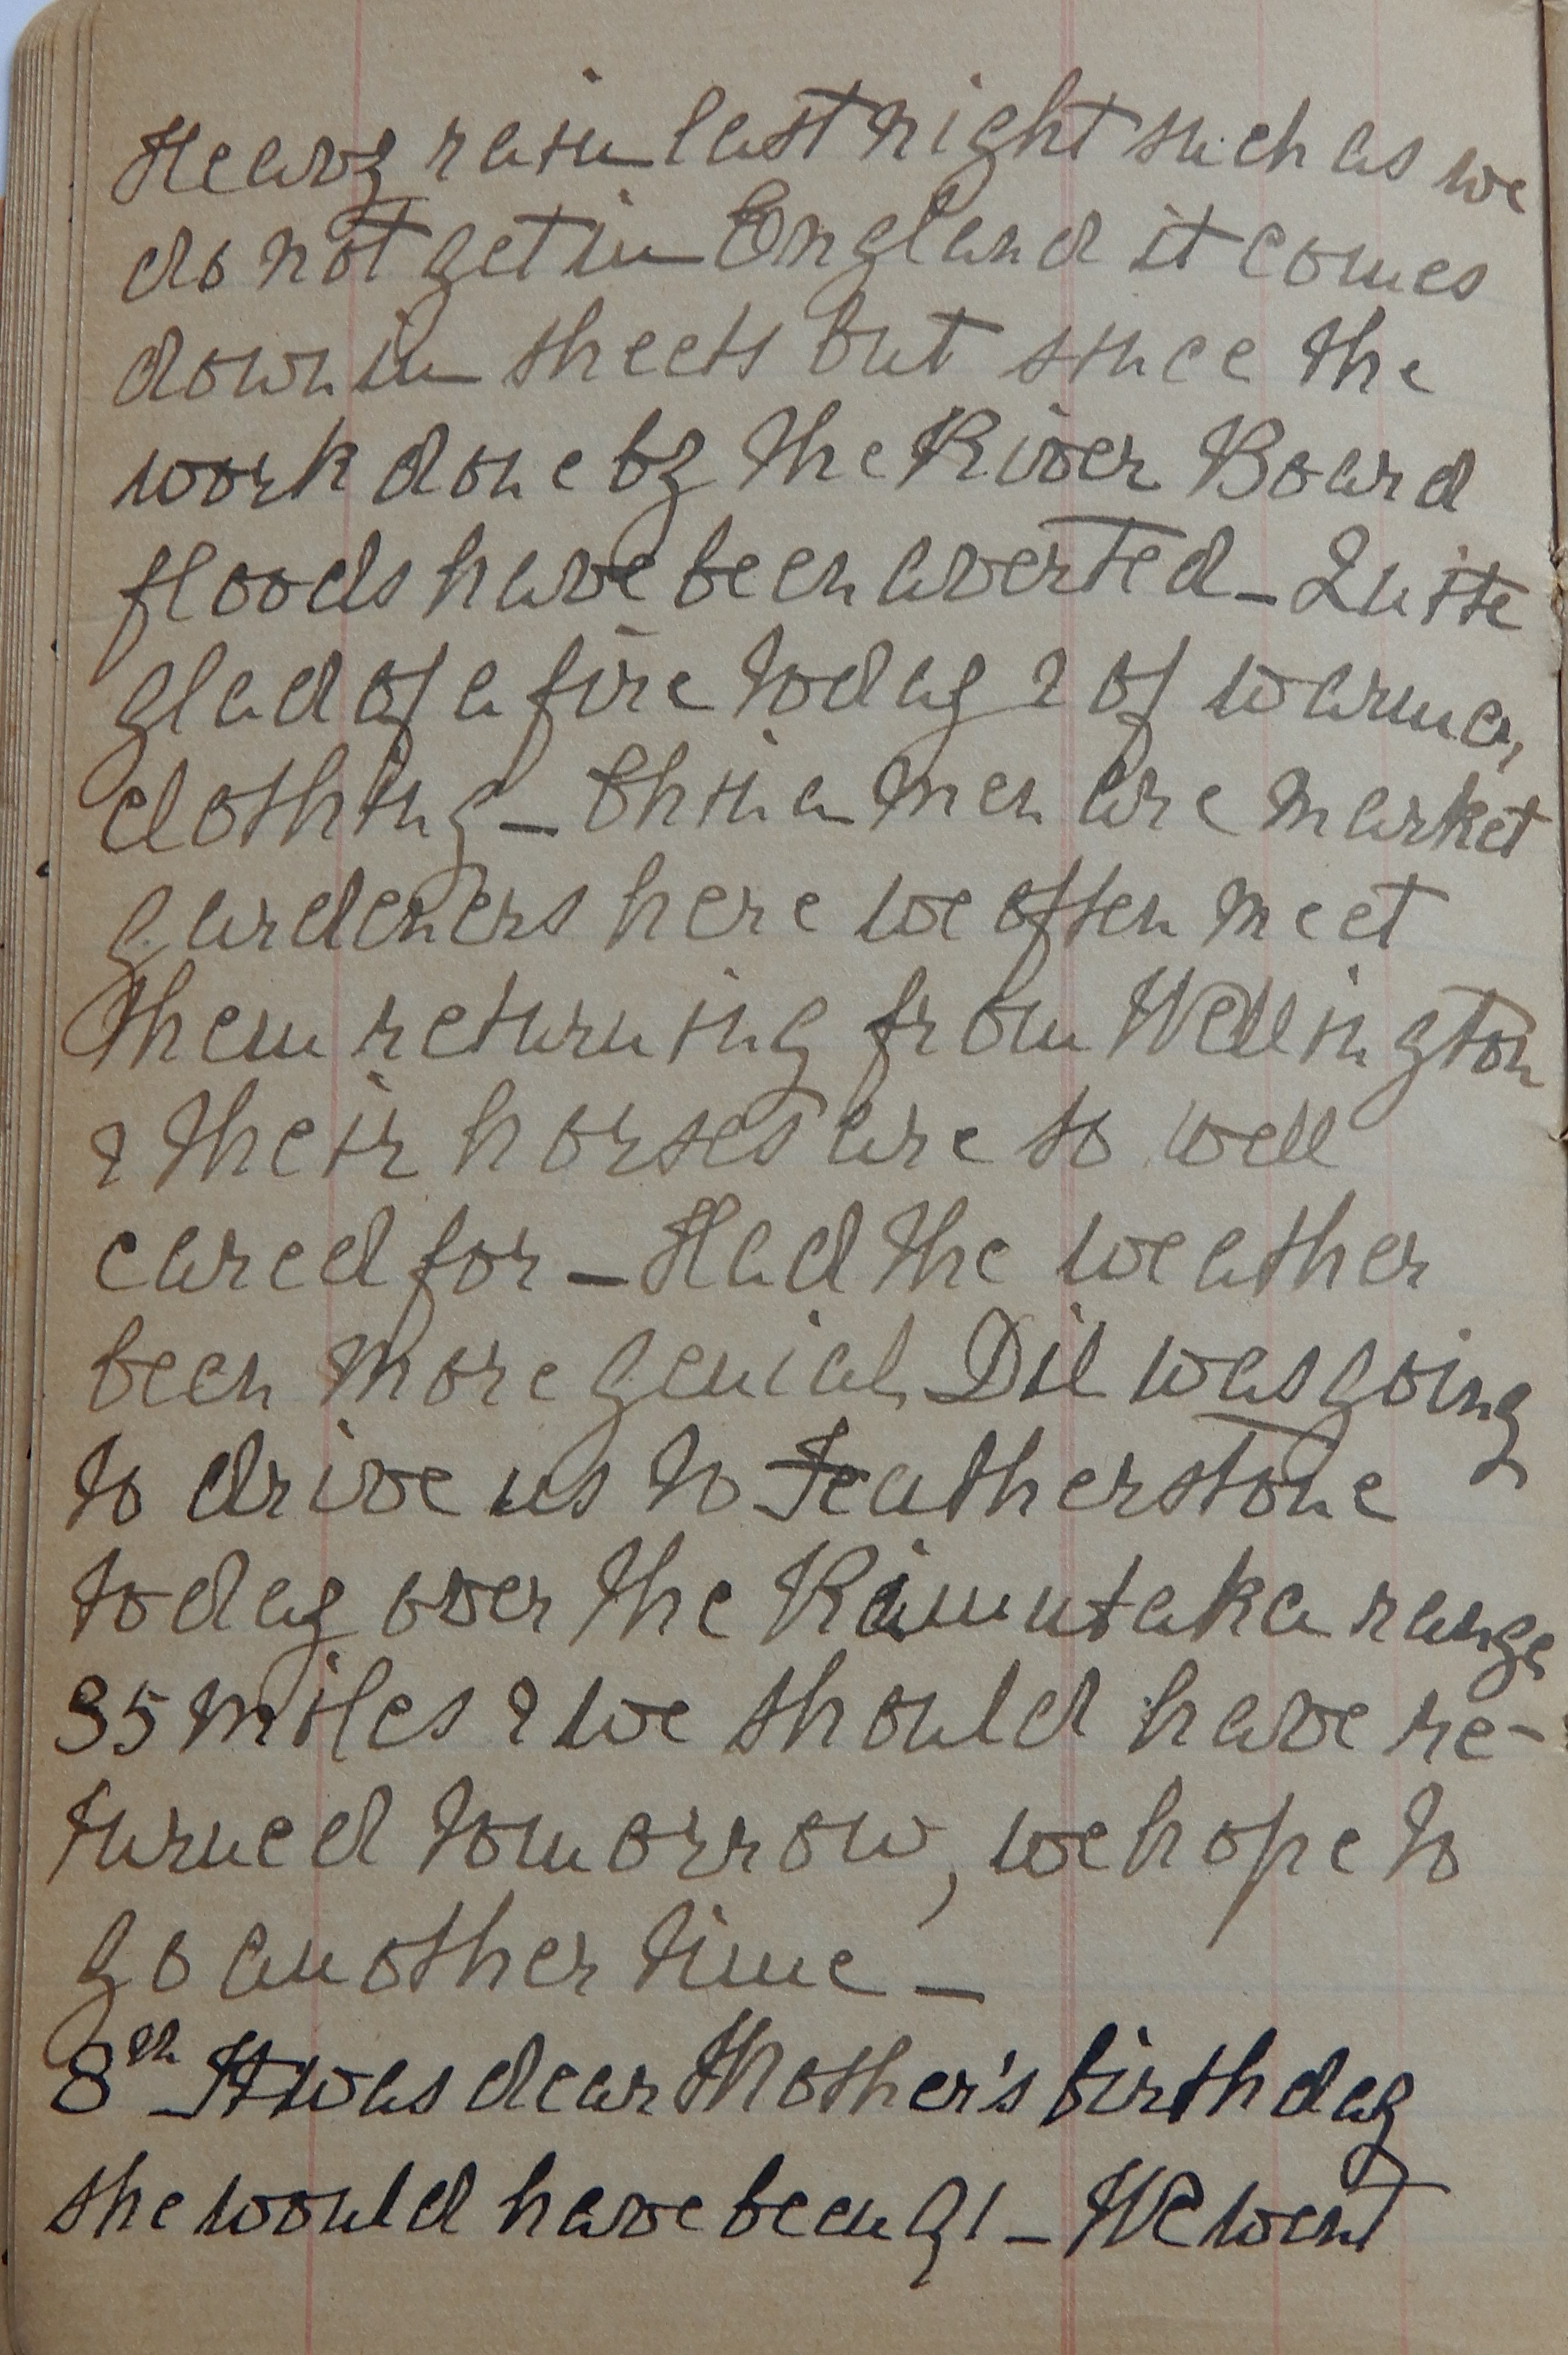 Heavy rain last night such as we
do not get in England it comes
down in sheets but since the
work done by the River Board
floods have been averted – Quite
glad of a fire today & of warmer
clothing – China men are market
gardeners here we often meet
them returning from Wellington
& their horses are so well
cared for – Had the weather
been more genial Dil was going
to drive us to Featherstone
today over the Rimutaka range
35 miles & we should have re-
turned tomorrow, we hope to
go another time –
8th It was dear Mother's birthday
she would have been 91 – We went